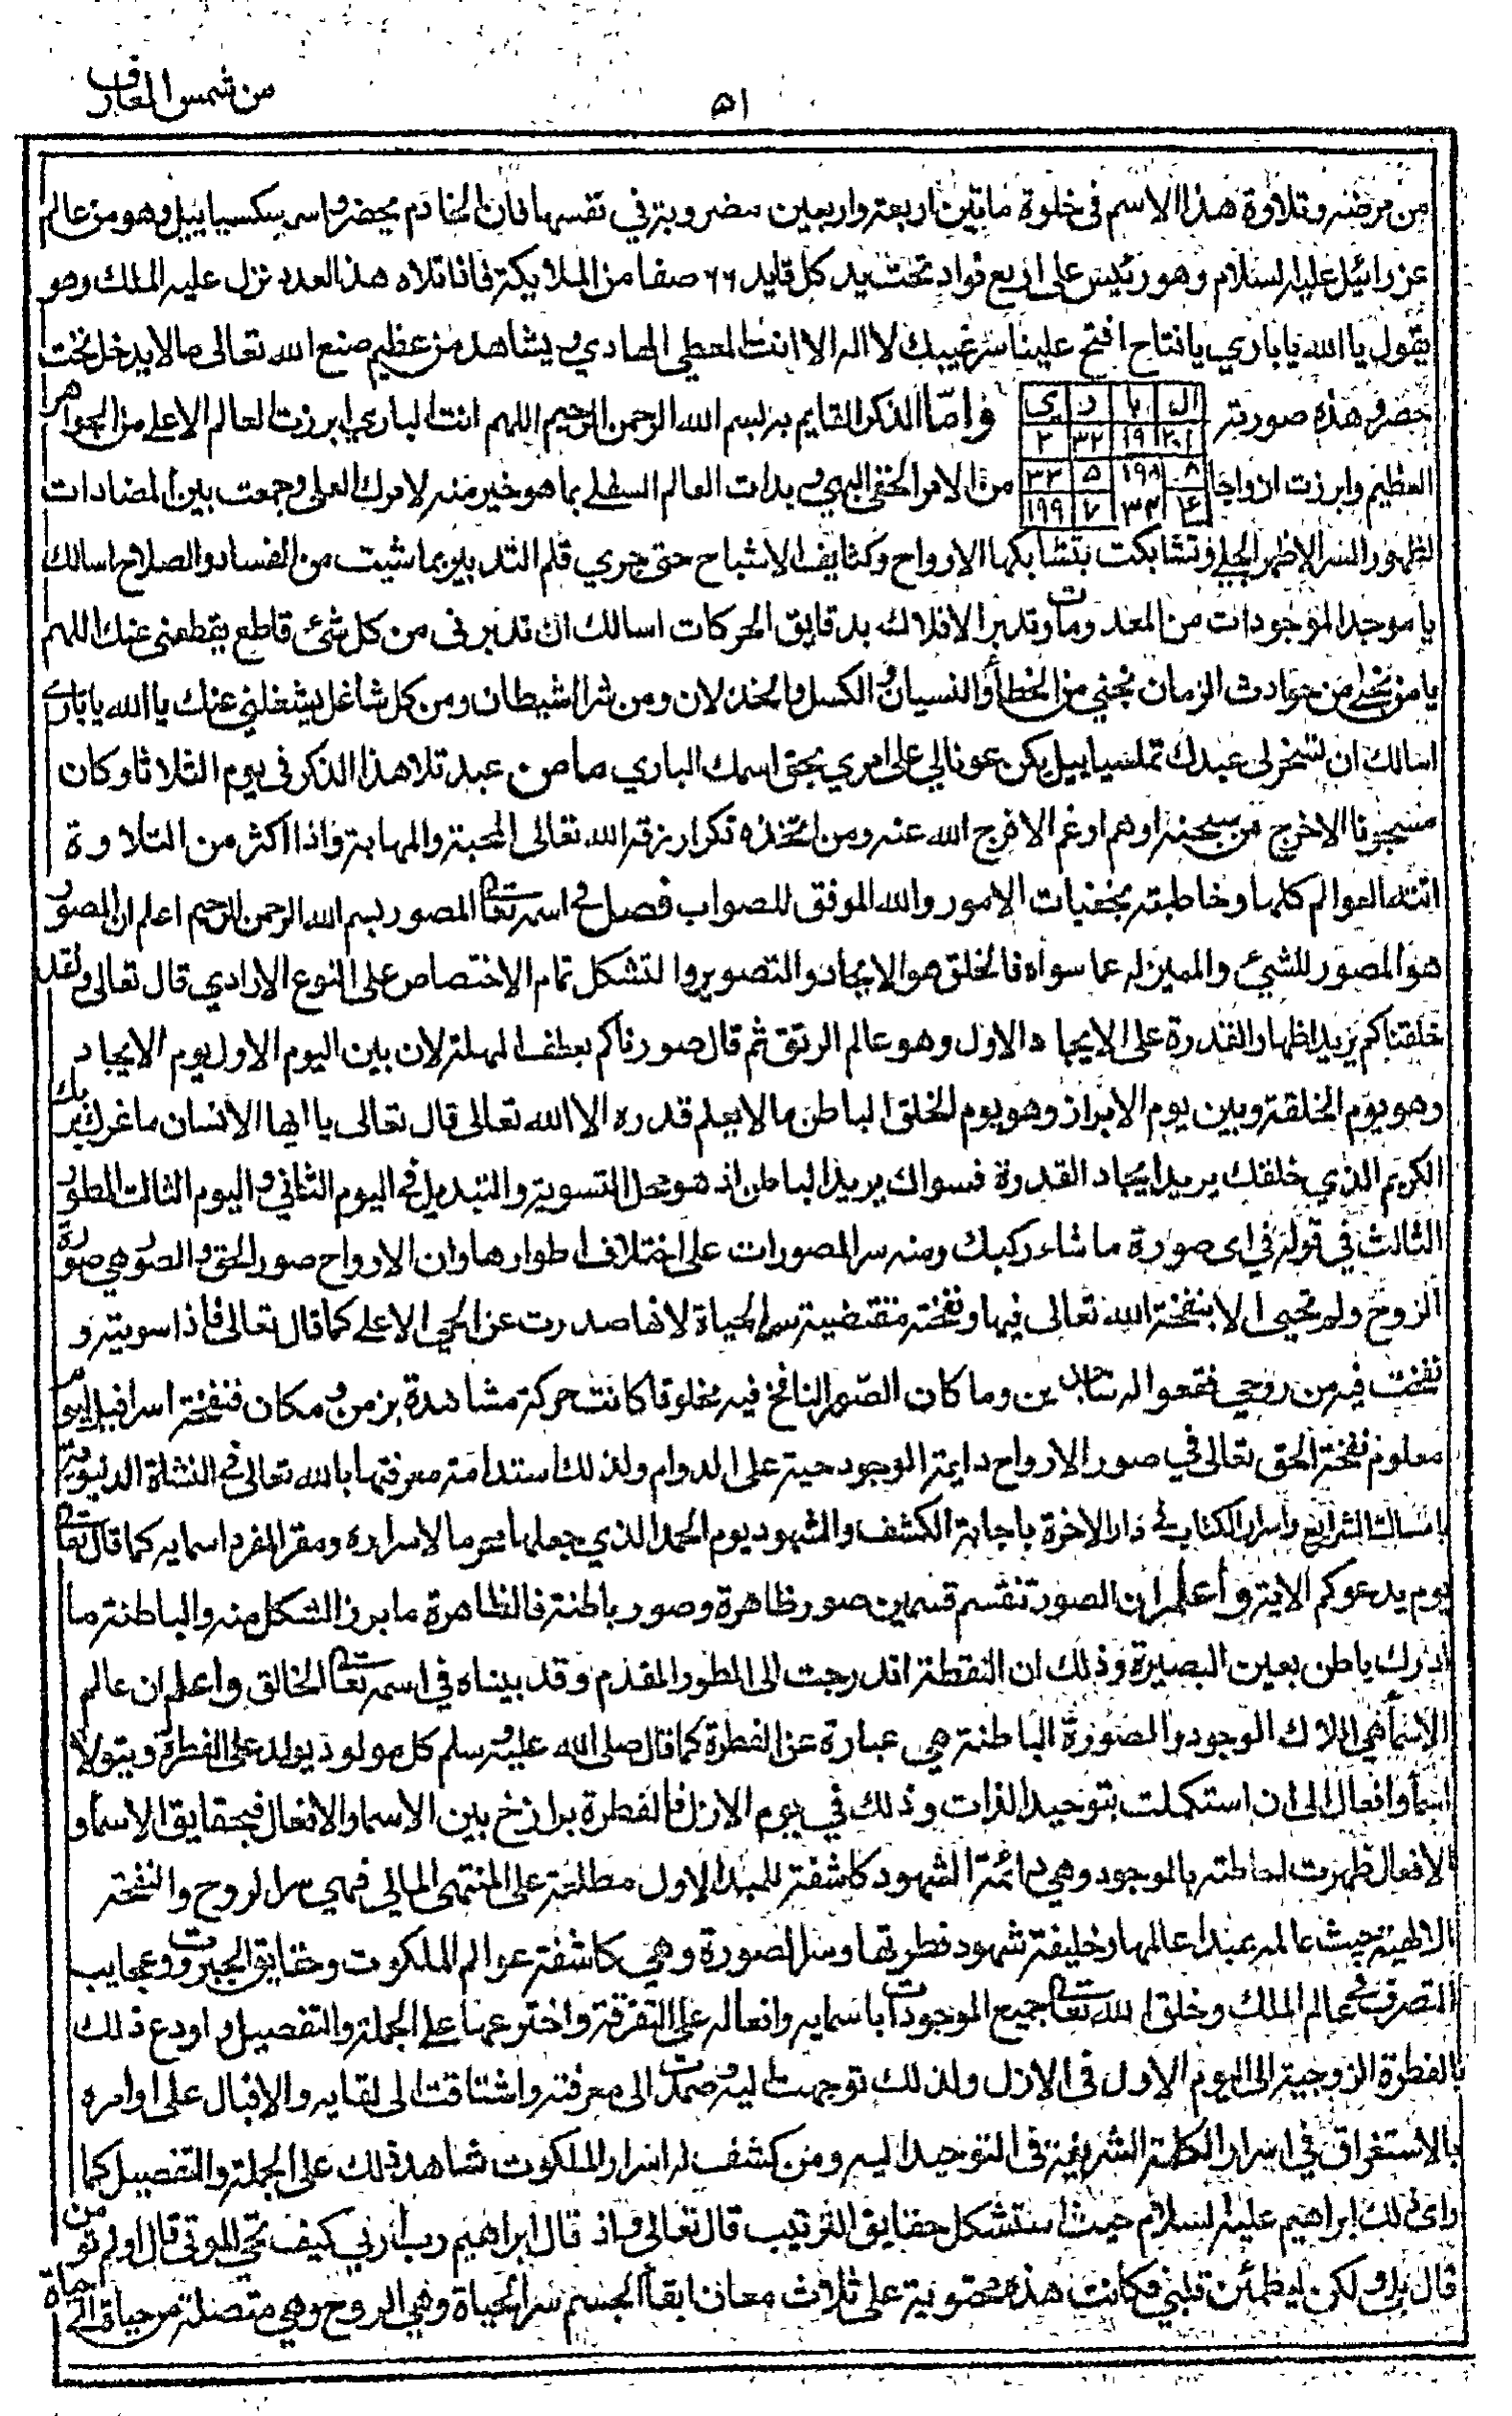 من شمس المعارف
٥١
من مرضه وتلاوة هذا الاسم فى خلوة مابين اربعة واربعين مضروبة في نفسها فان الخادم يحضر واسمه سكسيابيل وهو من عالم
عزرائيل عليه السلام وهو رئيس على اربع قواد تحت يد كل قايد ٦٦ صفا من الملايكة فاذا تلاه هذ العدد نزل عليه الملك وهو
يقول يا الله يا باري يا فتاح افتح علينا سر غيبك لا اله الا انت المعطي الهادي ويشاهد من عظيم صنع الله تعالى ما لا يدخل تحت
حصر وهذه صورته
ال با ر ى
٢٠١ ١٩ ٣٢ ٢
٨ ١٩٨ ٥ ٣٣
٤ ٣٤ ٧ ١٩٩
واما الذكر القايم به بسم الله الرحمن الرحيم اللهم انت الباري ابرزت العالم الاعلى من الجواهر
العظيم وابرزت ازواجا من الامر الخفي البهي وبدات العالم السفلي بما هو خير منه لامرك العلي وجمعت بين المضادات
لظهور السر الاظهر الجلي وتشابكت بتشابكها الارواح وكثايف الاشباح حتى جري قلم التدبير بما شيت من الفساد والصلاح اسالك
يا موجد الموجودات من المعدومات وتدبر الافلاك بدقايق الحركات اسالك ان تدبرنى من كل شئ قاطع يقطعنى عنك اللهم
يا من نجلي من حوادث الزمان نجني من الخطأ والنسيان والكسل والخذلان ومن شر الشيطان ومن كل شاغل يشغلني عنك يا الله يا باري
اسالك ان تسخر لى عبدك تملسيابيل يكن عونا لي على امري بحق اسمك الباري ما من عبد تلا هذا الذكر فى يوم الثلاثا وكان
مسجونا الا خرج من سجنه او هم او غم الا فرج الله عنه ومن اتخذه تكرار رزقه الله تعالى المحبة والمهابة فاذا اكثر من التلاوة
اتته العوالم كلها وخاطبته بخفيات الامور والله الموفق للصواب فصل في اسمه تعالى المصور بسم الله الرحمن الرحيم اعلم ان المصور
هو المصور للشيء والمميز له عما سواه فالخلق هو الايجاد والتصوير والتشكل تمام الاختصاص على النوع الارادي قال تعالى ولقد
خلقناكم يريد اظهار القدرة على الايجاد الاول وهو عالم الرتق ثم قال صورناكم بعطف المهلة لان بين اليوم الاول يوم الايجاد
وهو يوم الخلقة وبين يوم الابراز وهو يوم الخلق الباطن ما لا يعلم قدره الا الله تعالى قال تعالى يا ايها الانسان ما غرك بربك
الكريم الذي خلقك يريد ايجاد القدرة فسواك يريد الباطن اذ هو محل التسوية والتبديل في اليوم الثاني واليوم الثالث الطور
الثالث في قوله في اى صورة ما شاء ركبك ومنه سر المصورات على اختلاف اطوارها وان الارواح صور الحق والصور هي صورة
الروح ولم تحيى الا بنفخة الله تعالى فيها ونفخته مقتضية سر الحياة لانها صدرت عن الحي الاعلى كما قال تعالى فاذا سويته و
نفخت فيه من روحي فقعوا له ساجدين وما كان الصور النافخ فيه مخلوقا كانت حركته مشاهدة بزمن ومكان فنفخة اسرافيل ليوم
معلوم نفخة الحق تعالى في صور الارواح دايمة الوجود حية على الدوام ولذلك استدامة معرفتها بالله تعالى في النشاة الدنيوية
بامساك الشرايع واسرار الكتاب في دار الاخرة باجابة الكشف والشهود يوم الحمد الذي جعلها حرما لاسراره ومقرا لمفرد اسمايه كما قال تعالى
يوم يدعوكم الاية واعلم ان الصور تنقسم قسمين صور ظاهرة وصور باطنة فالظاهرة ما برز الشكل منه والباطنة ما
ادرك باطن بعين البصيرة وذلك ان النقطة اندرجت الى الطور المقدم وقد بيناه في اسمه تعالى الخالق واعلم ان عالم
الاسما هي املاك الوجود والصورة الباطنة هي عبارة عن الفطرة كما قال صلى الله عليه وسلم كل مولود يولد على الفطرة ويتولا
اسما وافعال الى ان استكملت بتوحيد الذات وذلك في يوم الازل فالفطرة برازخ بين الاسما والافعال فبحقايق الاسما و
الافعال ظهرت احاطته بالموجود وهي دائمة الشهود كاشفة للمبدا الاول مطلعة على المنتهى المالي فهي سر الروح والنفخة
الالهية حيث عالمه بمبدا عالمها وخليفة شهود فطرتها وسر الصورة وهي كاشفة عوالم الملكوت وحقايق الجبروت وعجايب
التصرف في عالم الملك وخلق الله تعالى جميع الموجودات باسمايه وافعاله على التفرقة واخترعها على الجملة والتفصيل واودع ذلك
بالفطرة الزوجية الى اليوم الاول فى الازل ولذلك توجهت اليه وصمدت الى معرفته واشتاقت الى لقايه والاقبال على اوامره
بالاستغراق في اسرار الكلمة الشريفة فى التوحيد اليه ومن كشف له اسرار الملكوت شاهد ذلك على الجملة والتفصيل كما
راى ذلك ابراهيم عليه السلام حيث استشكل حقايق الترتيب قال تعالى واذ قال ابراهيم رب ارني كيف تحي الموتى قال اولم تومن
قال بلى ولكن ليطمئن قلبي فكانت هذه محتوية على ثلاث معان ابقا الجسم سر الحياة وهي الروح وهي متصلة من حياة الى حياة